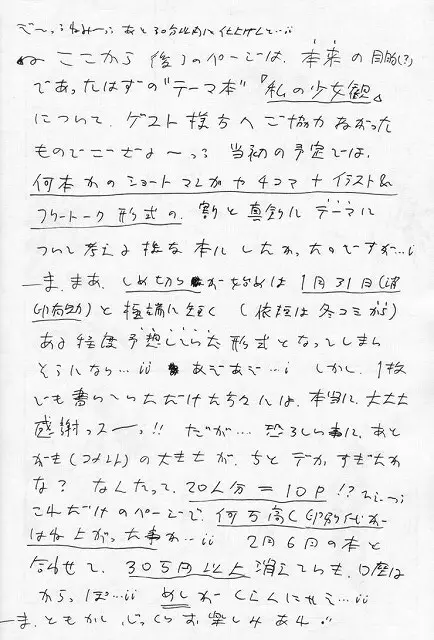 で〜っうねみ〜っ あと30分以内に仕上げんと…ii
ここから後ろのページは、本来の目的(?)
であったはずの"テーマ本"『私の少女観』
について、ゲスト様方へご協力ねがった
ものでござよ〜っっ 当初の予定では、
何本かのショートマンガや4コマ+イラスト&
フリートーク形式の、割と真剣にテーマに
ついて考えよ様な本にしたかったのですが…i
ま、まあ、しめ切りが始めは1月31日(消
印有効)と極端に短く(依頼は冬コミから)
ある程度予想していた形式となってしまい
そうになり…ii あぞあぞ…i しかし、1枚
でも書いていただけた方々には、本当に、大大大
感謝っスーっ!! だが…恐ろしい事に、あと
がき(コメント)の大きさが、ちとデカすぎたか
な? なんたって、20人分=10P!?
これだけのページで、何万高く印刷代が
はね上がった事か…ii 2月6日の本と
合わせて、30万円以上消えてゆき、口座は
からっぽ…ii めしがくえんにゃえ…ii
ま、ともかく、じっくりお楽しみあれ!!